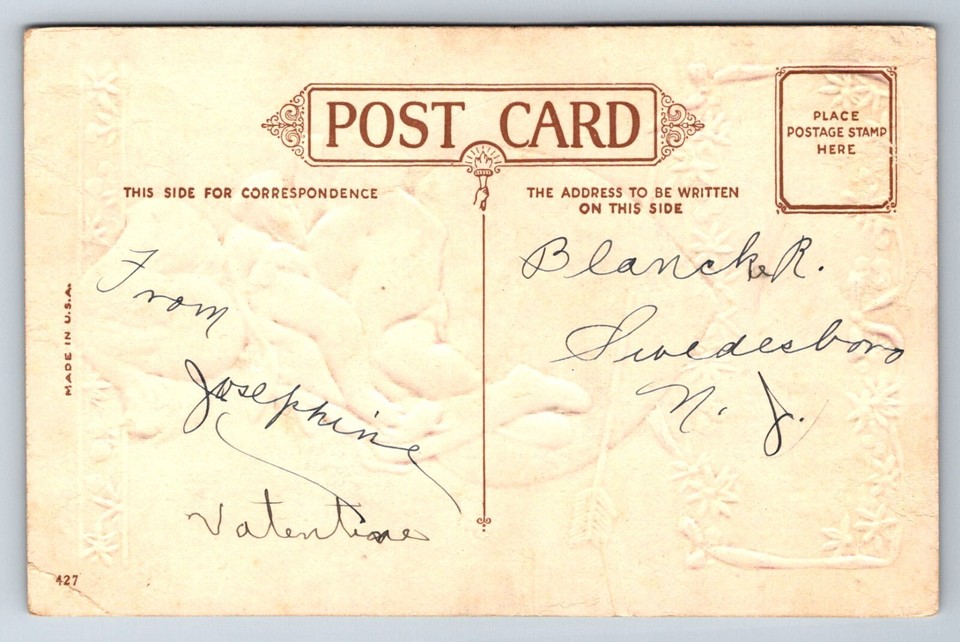 POST CARD
PLACE
POSTAGE STAMP
HERE
THIS SIDE FOR CORRESPONDENCE
THE ADDRESS TO BE WRITTEN
ON THIS SIDE
From
Josephine
Valentine
Blanche R.
Swedesboro
N. J.
MADE IN U.S.A.
427